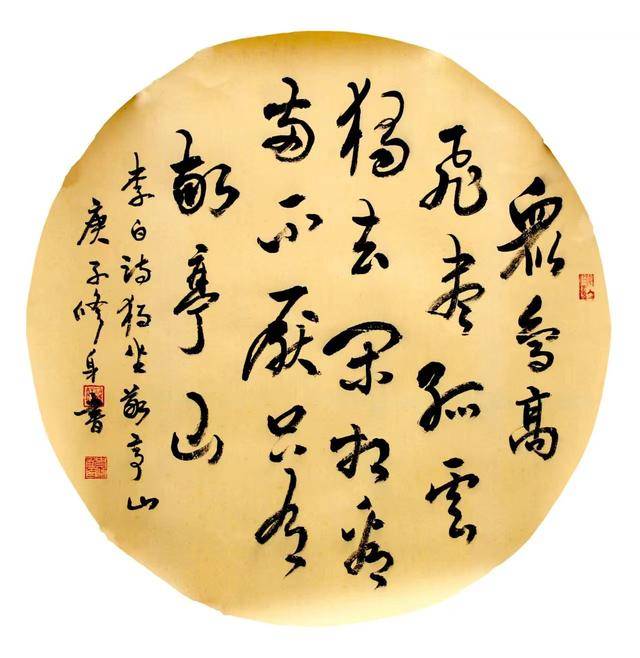 眾鳥高
飛盡孤雲
獨去閑相看
兩不厭只有
敬亭山
李白詩獨坐敬亭山
庚子修身書